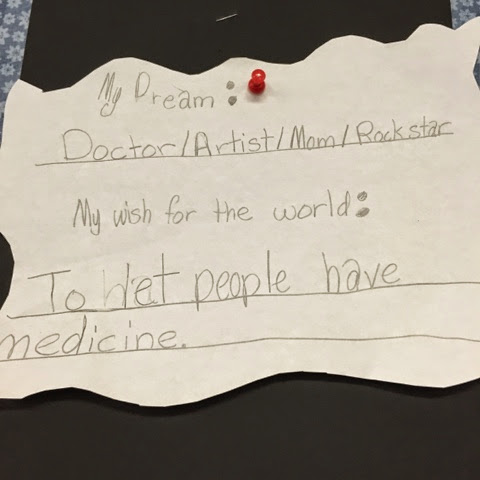 My Dream:
Doctor/Artist/Mom/Rockstar
My wish for the world:
To let people have
medicine.